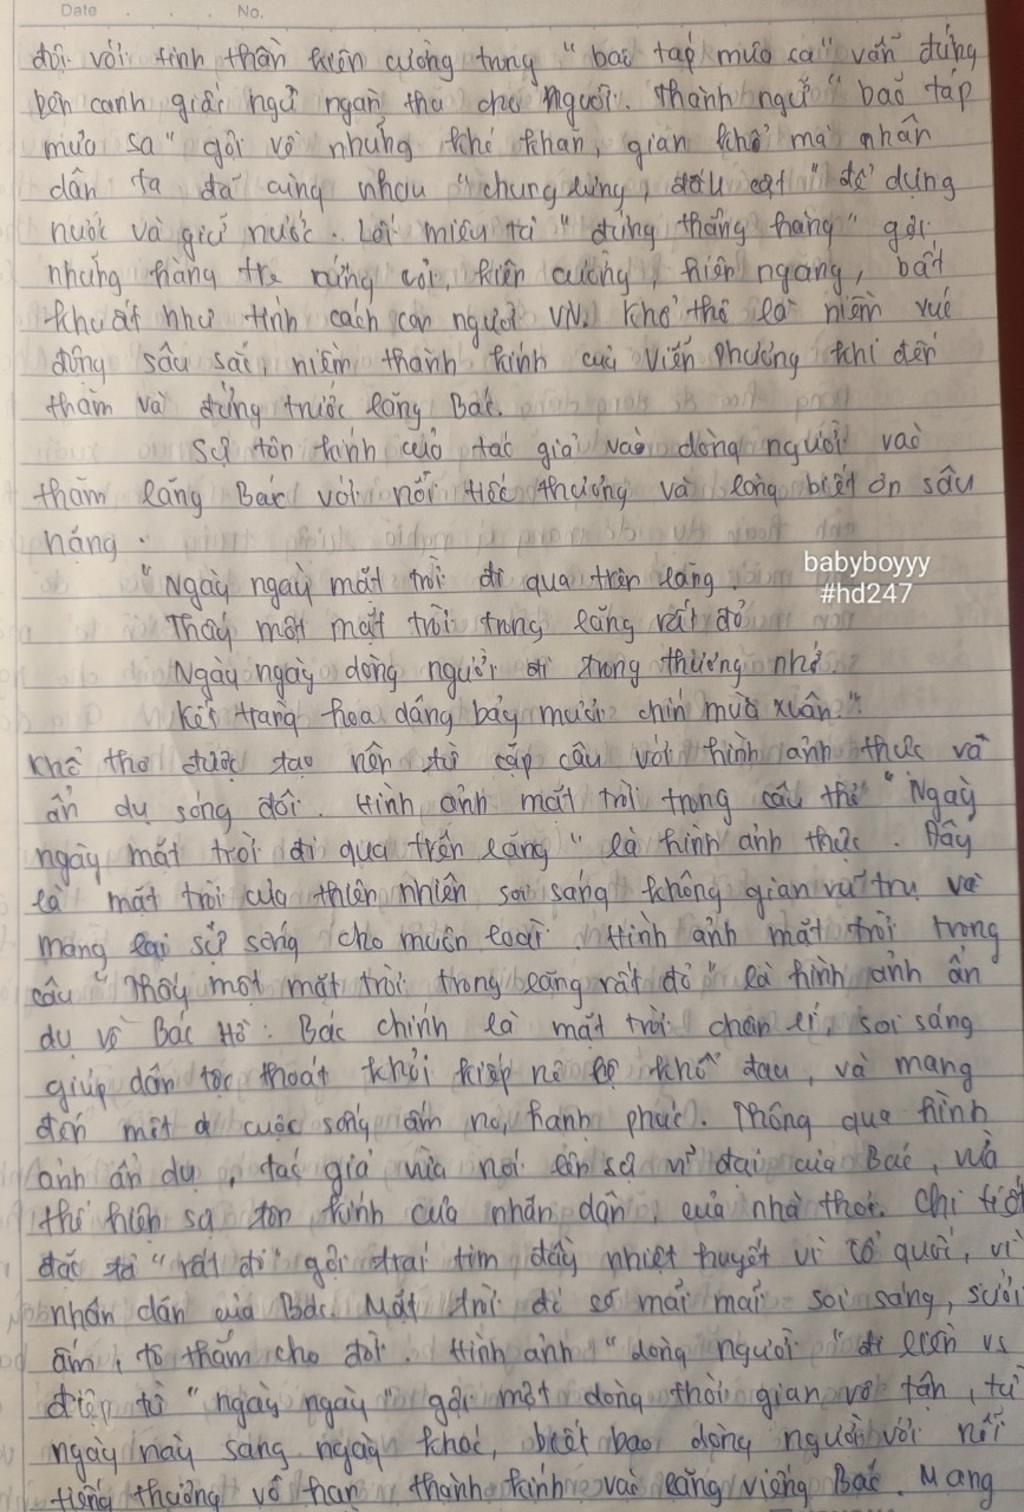 Date . . . No.
đôi với tinh thần kiên cường trung "bão táp mưa sa" vẫn đứng
bên cạnh giấc ngủ ngàn thu cho Người. Thành ngữ "bão táp
mưa sa" gợi về những khó khăn, gian khổ mà nhân
dân ta đã cùng nhau "chung lưng, đấu cật" để dựng
nước và giữ nước. Lối miêu tả "đứng thẳng hàng" gợi
những hàng tre cứng cỏi, kiên cường, hiên ngang, bất
khuất như tính cách con người VN. Khổ thơ là niềm xúc
động sâu sắc, niềm thành kính của Viễn Phương khi đến
thăm và đứng trước lăng Bác.
Sự tôn kính của tác giả vào dòng người vào
thăm lăng Bác với nỗi tiếc thương và lòng biết ơn sâu
nặng.
"Ngày ngày mặt trời đi qua trên lăng
Thấy một mặt trời trong lăng rất đỏ
Ngày ngày dòng người đi trong thương nhớ
Kết tràng hoa dâng bảy mươi chín mùa xuân."
babyboyyy
#hd247
Khổ thơ được tạo nên từ cặp câu với hình ảnh thực và
ẩn dụ sóng đôi. Hình ảnh mặt trời trong câu thơ "Ngày
ngày mặt trời đi qua trên lăng" là hình ảnh thực. Đây
là mặt trời của thiên nhiên soi sáng không gian vũ trụ và
mang lại sự sống cho muôn loài. Hình ảnh mặt trời trong
câu "Thấy một mặt trời trong lăng rất đỏ" là hình ảnh ẩn
dụ về Bác Hồ. Bác chính là mặt trời chân lí, soi sáng
giúp dân tộc thoát khỏi kiếp nô lệ khổ đau, và mang
đến một cuộc sống ấm no, hạnh phúc. Thông qua hình
ảnh ẩn dụ, tác giả vừa nói lên sự vĩ đại của Bác, vừa
thể hiện sự tôn kính của nhân dân, của nhà thơ. Chi tiết
đặc tả "rất đỏ" gợi trái tim đầy nhiệt huyết vì tổ quốc, vì
nhân dân của Bác. Mặt trời đó sẽ mãi mãi soi sáng, sưởi
ấm, tô thắm cho đời. Hình ảnh "dòng người" đi liền vs
điệp từ "ngày ngày" gợi một dòng thời gian vô tận, từ
ngày này sang ngày khác, biết bao dòng người với nỗi
tiếng thương vô hạn, thành kính vào lăng viếng Bác. Mang